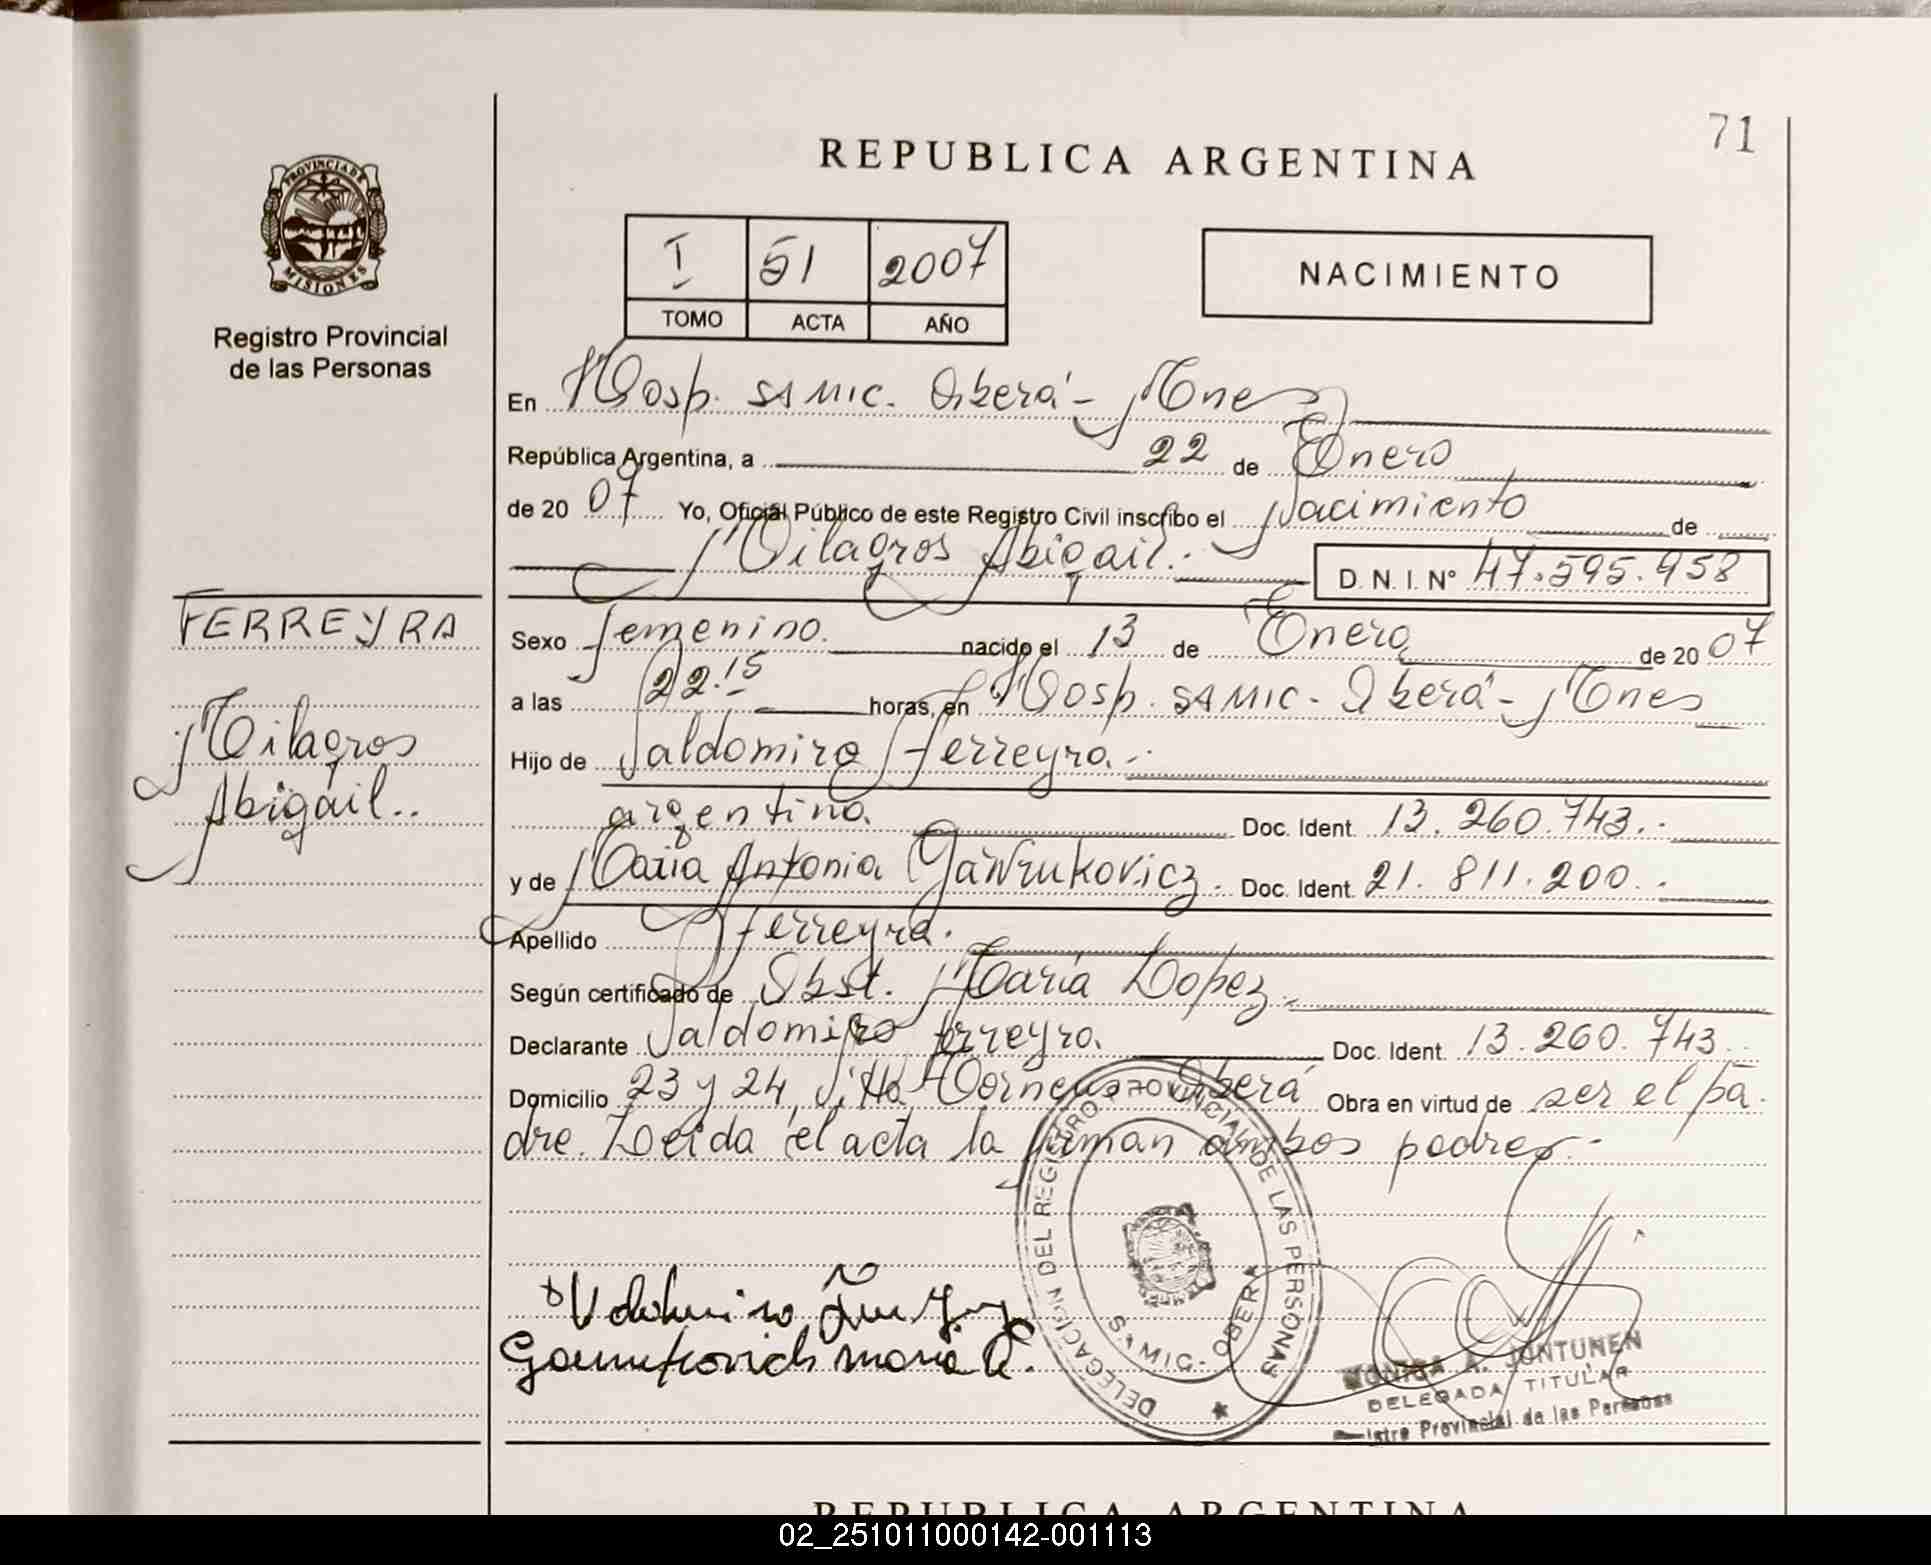 71
REPUBLICA ARGENTINA
PROVINCIA DE
MISIONES
Registro Provincial
de las Personas
I 51 2007
TOMO ACTA AÑO
NACIMIENTO
En Hosp. SAMIC. Oberá - Mnes
República Argentina, a 22 de Enero
de 20 07 Yo, Oficial Público de este Registro Civil inscribo el Nacimiento de
Milagros Abigail. D.N.I. Nº 47.595.958
FERREYRA
Milagros
Abigail..
Sexo femenino. nacido el 13 de Enero de 20 07
a las 22.15 horas, en Hosp. SAMIC - Oberá - Mnes
Hijo de Valdomiro Ferreyra.-
argentino. Doc. Ident. 13.260.743.-
y de Maria Antonia Gawrukovicz. Doc. Ident. 21.811.200.-
Apellido Ferreyra.
Según certificado de Obst. María Lopez.-
Declarante Valdomiro Ferreyro. Doc. Ident. 13.260.743.-
Domicilio 23 y 24, Villa Oberá Obra en virtud de ser el pa-
dre. Leida el acta la firman ambos padres.-
DELEGACION DEL REGISTRO PROVINCIAL DE LAS PERSONAS
SAMIC - OBERA
MONICA A. JUNTUNEN
DELEGADA TITULAR
Provincial de las Personas
REPUBLICA ARGENTINA
02_251011000142-001113